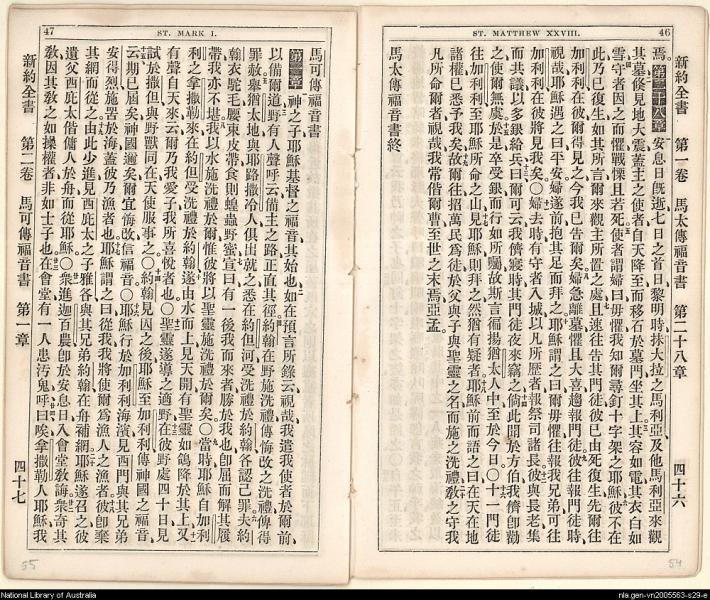 46
ST. MATTHEW XXVIII.
新約全書 第一卷 馬太傳福音書 第二十八章 四十六
焉第二十八章安息日旣逝七日之首日黎明時抹大拉之馬利亞及他馬利亞來觀
其墓倏見地大震蓋主之使者自天降至而移石於墓門坐其上其容如電其衣白如
雪守者因之而懼戰慄且若死使者謂婦曰毋懼我知爾尋釘十字架之耶穌彼不在
此乃已復生如其所言爾來觀主所置之處且速往告其門徒彼已由死復生先爾往
加利利在彼爾得見之今我已告爾矣婦急離墓懼且大喜趨報門徒彼往報門徒時
視哉耶穌遇之曰平安婦遂前抱其足而拜之耶穌謂之曰爾毋懼往報我兄弟可往
加利利在彼將見我矣〇婦去時有守者入城以凡所歷者報祭司諸長彼與長老集
而共議以多銀給兵曰爾可云我儕寢時其門徒夜來竊之倘此聞於方伯我儕卽勸
之使爾無虞於是卒受銀而行如所囑故斯言徧揚猶太人中至於今日〇十一門徒
往加利利至耶穌所命之山見耶穌則拜之然猶有疑者耶穌前而語之曰在天在地
諸權已悉予我矣故爾往招萬民爲徒於父與子與聖靈之名而施之洗禮敎之守我
凡所命爾者視哉我常偕爾曹至世之末焉亞孟
馬太傳福音書終
47
ST. MARK I.
馬可傳福音書
第一章神之子耶穌基督之福音其始也如在預言所錄云視哉我遣我使者於爾前
以備爾道野有人聲呼云備主之路正直其徑約翰在野施洗禮傳悔改之洗禮俾得
罪赦舉猶太地與耶路撒冷人俱出就之悉在約但河受洗禮於約翰各認己罪夫約
翰衣駝毛腰束皮帶食則蝗蟲野蜜宣曰有一後我而來者勝於我也卽屈而解其履
帶我亦不堪我以水施洗禮於爾惟彼將以聖靈施洗禮於爾矣〇當時耶穌自加利
利之拿撒勒來在約但受洗禮於約翰遂由水而上見天開有聖靈如鴿降於其上又
有聲自天來云爾乃我愛子我所喜悅者也〇聖靈遂導之適野在彼野處四十日見
試於撒但與野獸同在天使服事之〇約翰見囚之後耶穌至加利利傳神國之福音
云期已屆矣神國邇矣爾宜悔改信福音〇耶穌行於加利利海濱見西門與其兄弟
安得烈施罟於海蓋彼乃漁者也耶穌謂之曰從我我將使爾爲漁人之漁者彼卽棄
其網而從之由此少進見西庇太之子雅各與其兄弟約翰在舟補網耶穌遂召之彼
遺父西庇太偕傭人於舟而從耶穌〇衆進迦百農卽於安息日入會堂敎誨衆奇其
敎因其敎之如操權者非如士子也在會堂有一人患汚鬼呼曰唉拿撒勒人耶穌我
新約全書 第二卷 馬可傳福音書 第一章 四十七
55
54
National Library of Australia
nla.gen-vn2005563-s29-e